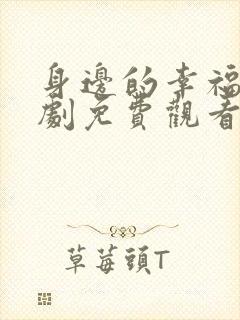 身邊的幸福
劇免費觀看
草莓頭T